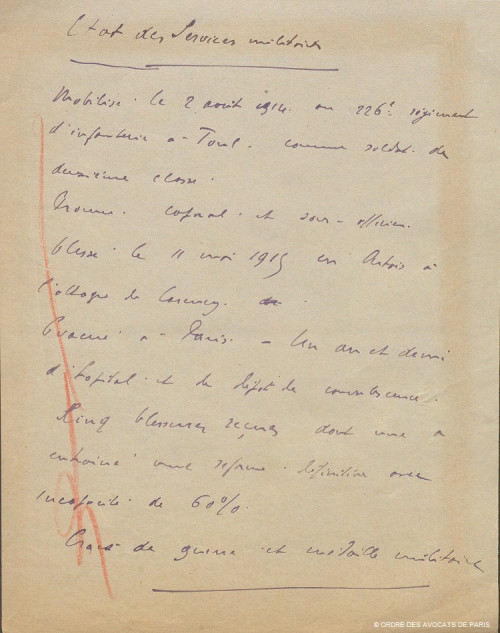 Etat des Services militaires
Mobilisé le 2 août 1914 au 226e régiment
d'infanterie à Toul comme soldat de
deuxième classe.
Promu caporal et sous-officier.
blessé le 11 mai 1915 en Artois à
l'attaque de Carency.
Evacué à Paris - Un an et demi
d'hopital et de dépôt de convalescence.
Cinq blessures reçues dont une a
entrainé une réforme définitive avec
incapacité de 60%.
Croix de guerre et médaille militaire
© ORDRE DES AVOCATS DE PARIS